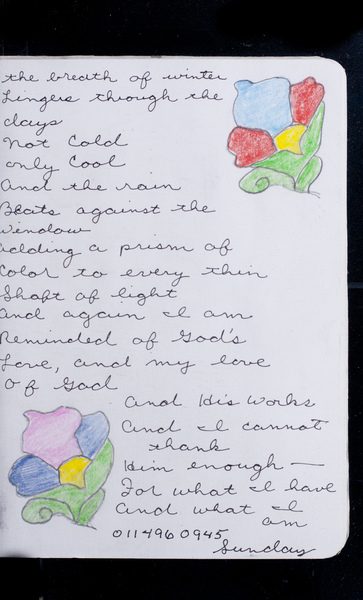 the breath of winter
Lingers through the
days
not cold
only cool
And the rain
Beats against the
window
adding a prism of
color to every thin
Shaft of light
and again I am
Reminded of God's
Love, and my love
Of God
And His works
And I cannot
thank
Him enough —
For what I have
And what I
am
0114960945
Sunday